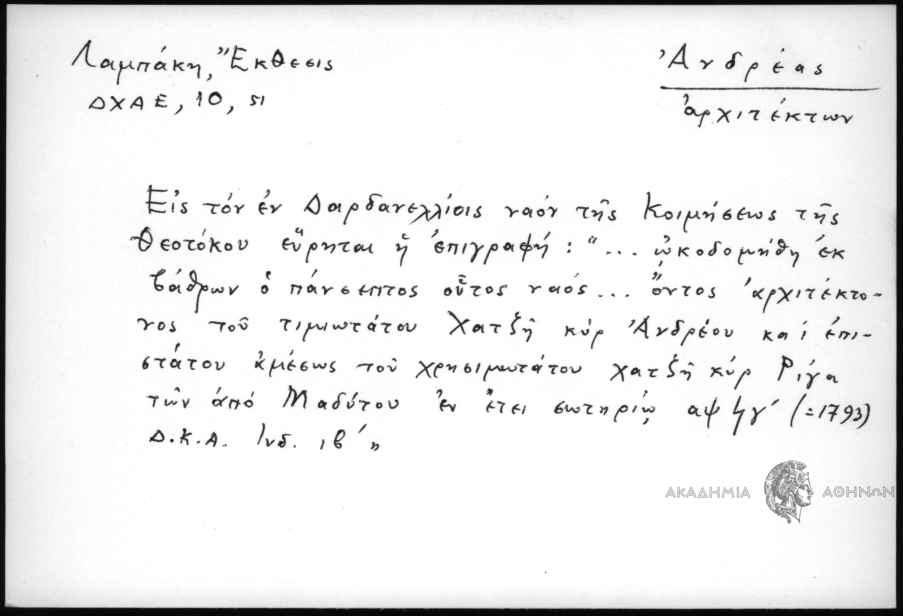 Λαμπάκη, Ἔκθεσις
ΔΧΑΕ, 10, 51
Ἀνδρέας
ἀρχιτέκτων
Εἰς τόν ἐν Δαρδανελλίοις ναόν τῆς Κοιμήσεως τῆς
Θεοτόκου εὕρηται ἡ ἐπιγραφή : "... ὠκοδομήθη ἐκ
βάθρων ὁ πάνσεπτος οὗτος ναός... ὄντος ἀρχιτέκτο-
νος τοῦ τιμιωτάτου Χατζῆ κύρ Ἀνδρέου καί ἐπι-
στάτου ἀμέσως τοῦ χρησιμωτάτου χατζῆ κύρ Ρίγα
τῶν ἀπό Μαδύτου ἐν ἔτει σωτηρίῳ αψϟγ' (=1793)
Δ.Κ.Α. Ινδ. ιβ'"
ΑΚΑΔΗΜΙΑ ΑΘΗΝΩΝ